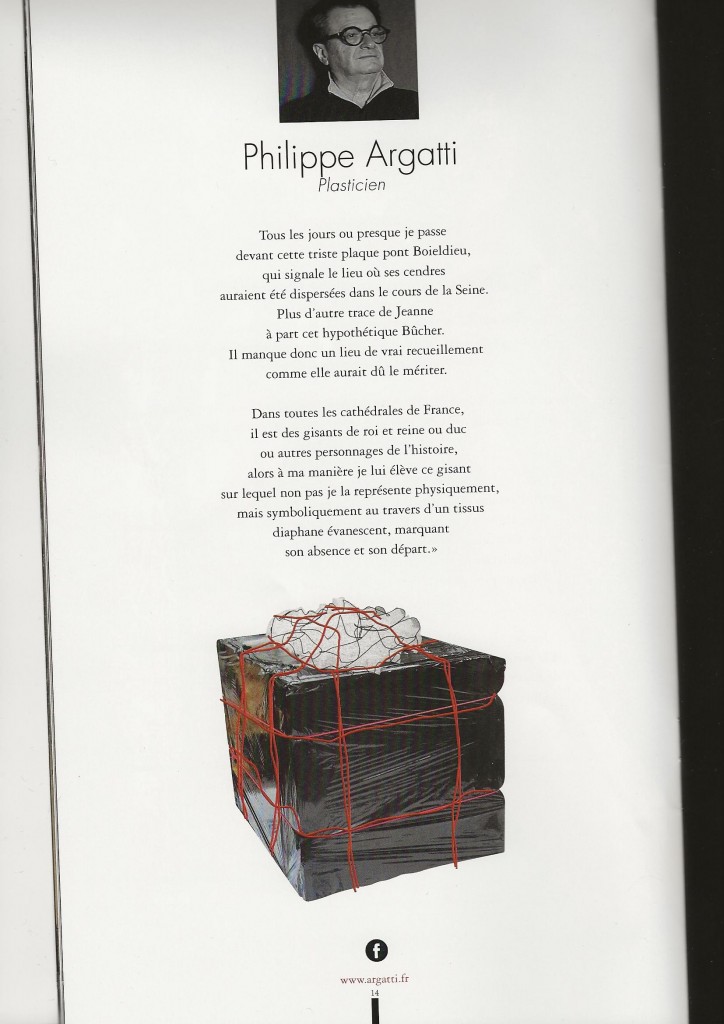 Philippe Argatti
Plasticien
Tous les jours ou presque je passe
devant cette triste plaque pont Boieldieu,
qui signale le lieu où ses cendres
auraient été dispersées dans le cours de la Seine.
Plus d'autre trace de Jeanne
à part cet hypothétique Bûcher.
Il manque donc un lieu de vrai recueillement
comme elle aurait dû le mériter.
Dans toutes les cathédrales de France,
il est des gisants de roi et reine ou duc
ou autres personnages de l'histoire,
alors à ma manière je lui élève ce gisant
sur lequel non pas je la représente physiquement,
mais symboliquement au travers d'un tissus
diaphane évanescent, marquant
son absence et son départ.»
f
www.argatti.fr
14